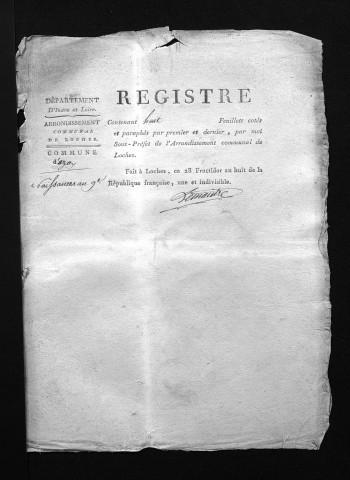 DÉPARTEMENT
D'Indre et Loire.
ARRONDISSEMENT
COMMUNAL
DE LOCHES.
COMMUNE
d'azay
Naissances an 9e
REGISTRE
Contenant huit Feuillets cotés
et paraphés par premier et dernier, par moi
Sous-Préfet de l'Arrondissement communal de
Loches.
Fait à Loches, ce 28 Fructidor an huit de la
République française, une et indivisible.
Lemaitre